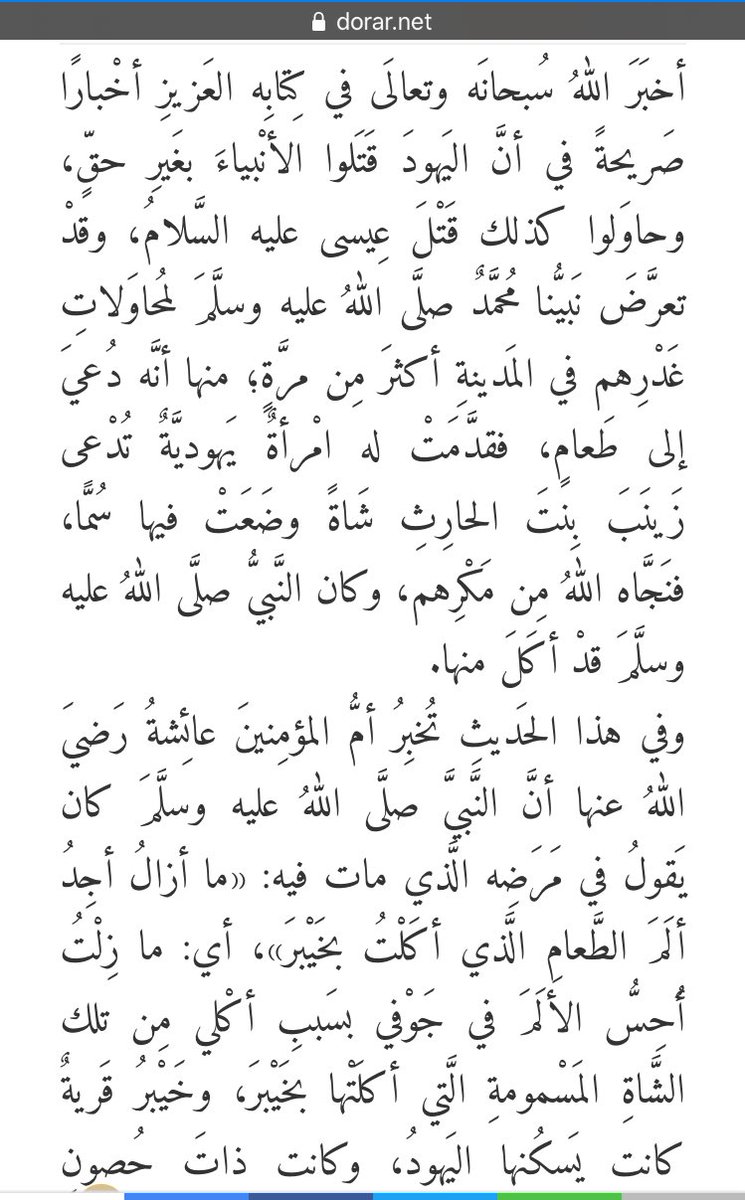 dorar.net
أخبَرَ اللهُ سُبحانَه وتعالَى في كِتابِه العَزيزِ أخْبارًا
صَريحةً في أنَّ اليَهودَ قَتَلوا الأنْبياءَ بغَيرِ حقٍّ،
وحاوَلوا كذلك قَتْلَ عِيسى عليه السَّلامُ، وقدْ
تعرَّضَ نَبيُّنا مُحمَّدٌ صلَّى اللهُ عليه وسلَّمَ لمُحاوَلاتِ
غَدْرِهم في المَدينةِ أكثرَ مِن مرَّةٍ؛ منها أنَّه دُعيَ
إلى طَعامٍ، فقدَّمَتْ له امْرأةٌ يَهوديَّةٌ تُدْعى
زَينَبَ بِنتَ الحارِثِ شَاةً وضَعَتْ فيها سُمًّا،
فنَجَّاه اللهُ مِن مَكْرِهم، وكان النَّبيُّ صلَّى اللهُ عليه
وسلَّمَ قدْ أكَلَ منها.
وفي هذا الحَديثِ تُخبِرُ أمُّ المؤمِنينَ عائِشةُ رَضيَ
اللهُ عنها أنَّ النَّبيَّ صلَّى اللهُ عليه وسلَّمَ كان
يَقولُ في مَرَضِه الَّذي مات فيه: «ما أزالُ أجِدُ
ألَمَ الطَّعامِ الَّذي أكَلْتُ بخَيْبرَ»، أي: ما زِلْتُ
أُحِسُّ الألَمَ في جَوْفي بسَببِ أكْلي مِن تلك
الشَّاةِ المَسْمومةِ الَّتي أكَلَتْها بخَيْبرَ، وخَيْبرُ قَريةٌ
كانت يَسكُنها اليَهودُ، وكانت ذاتَ حُصونٍ